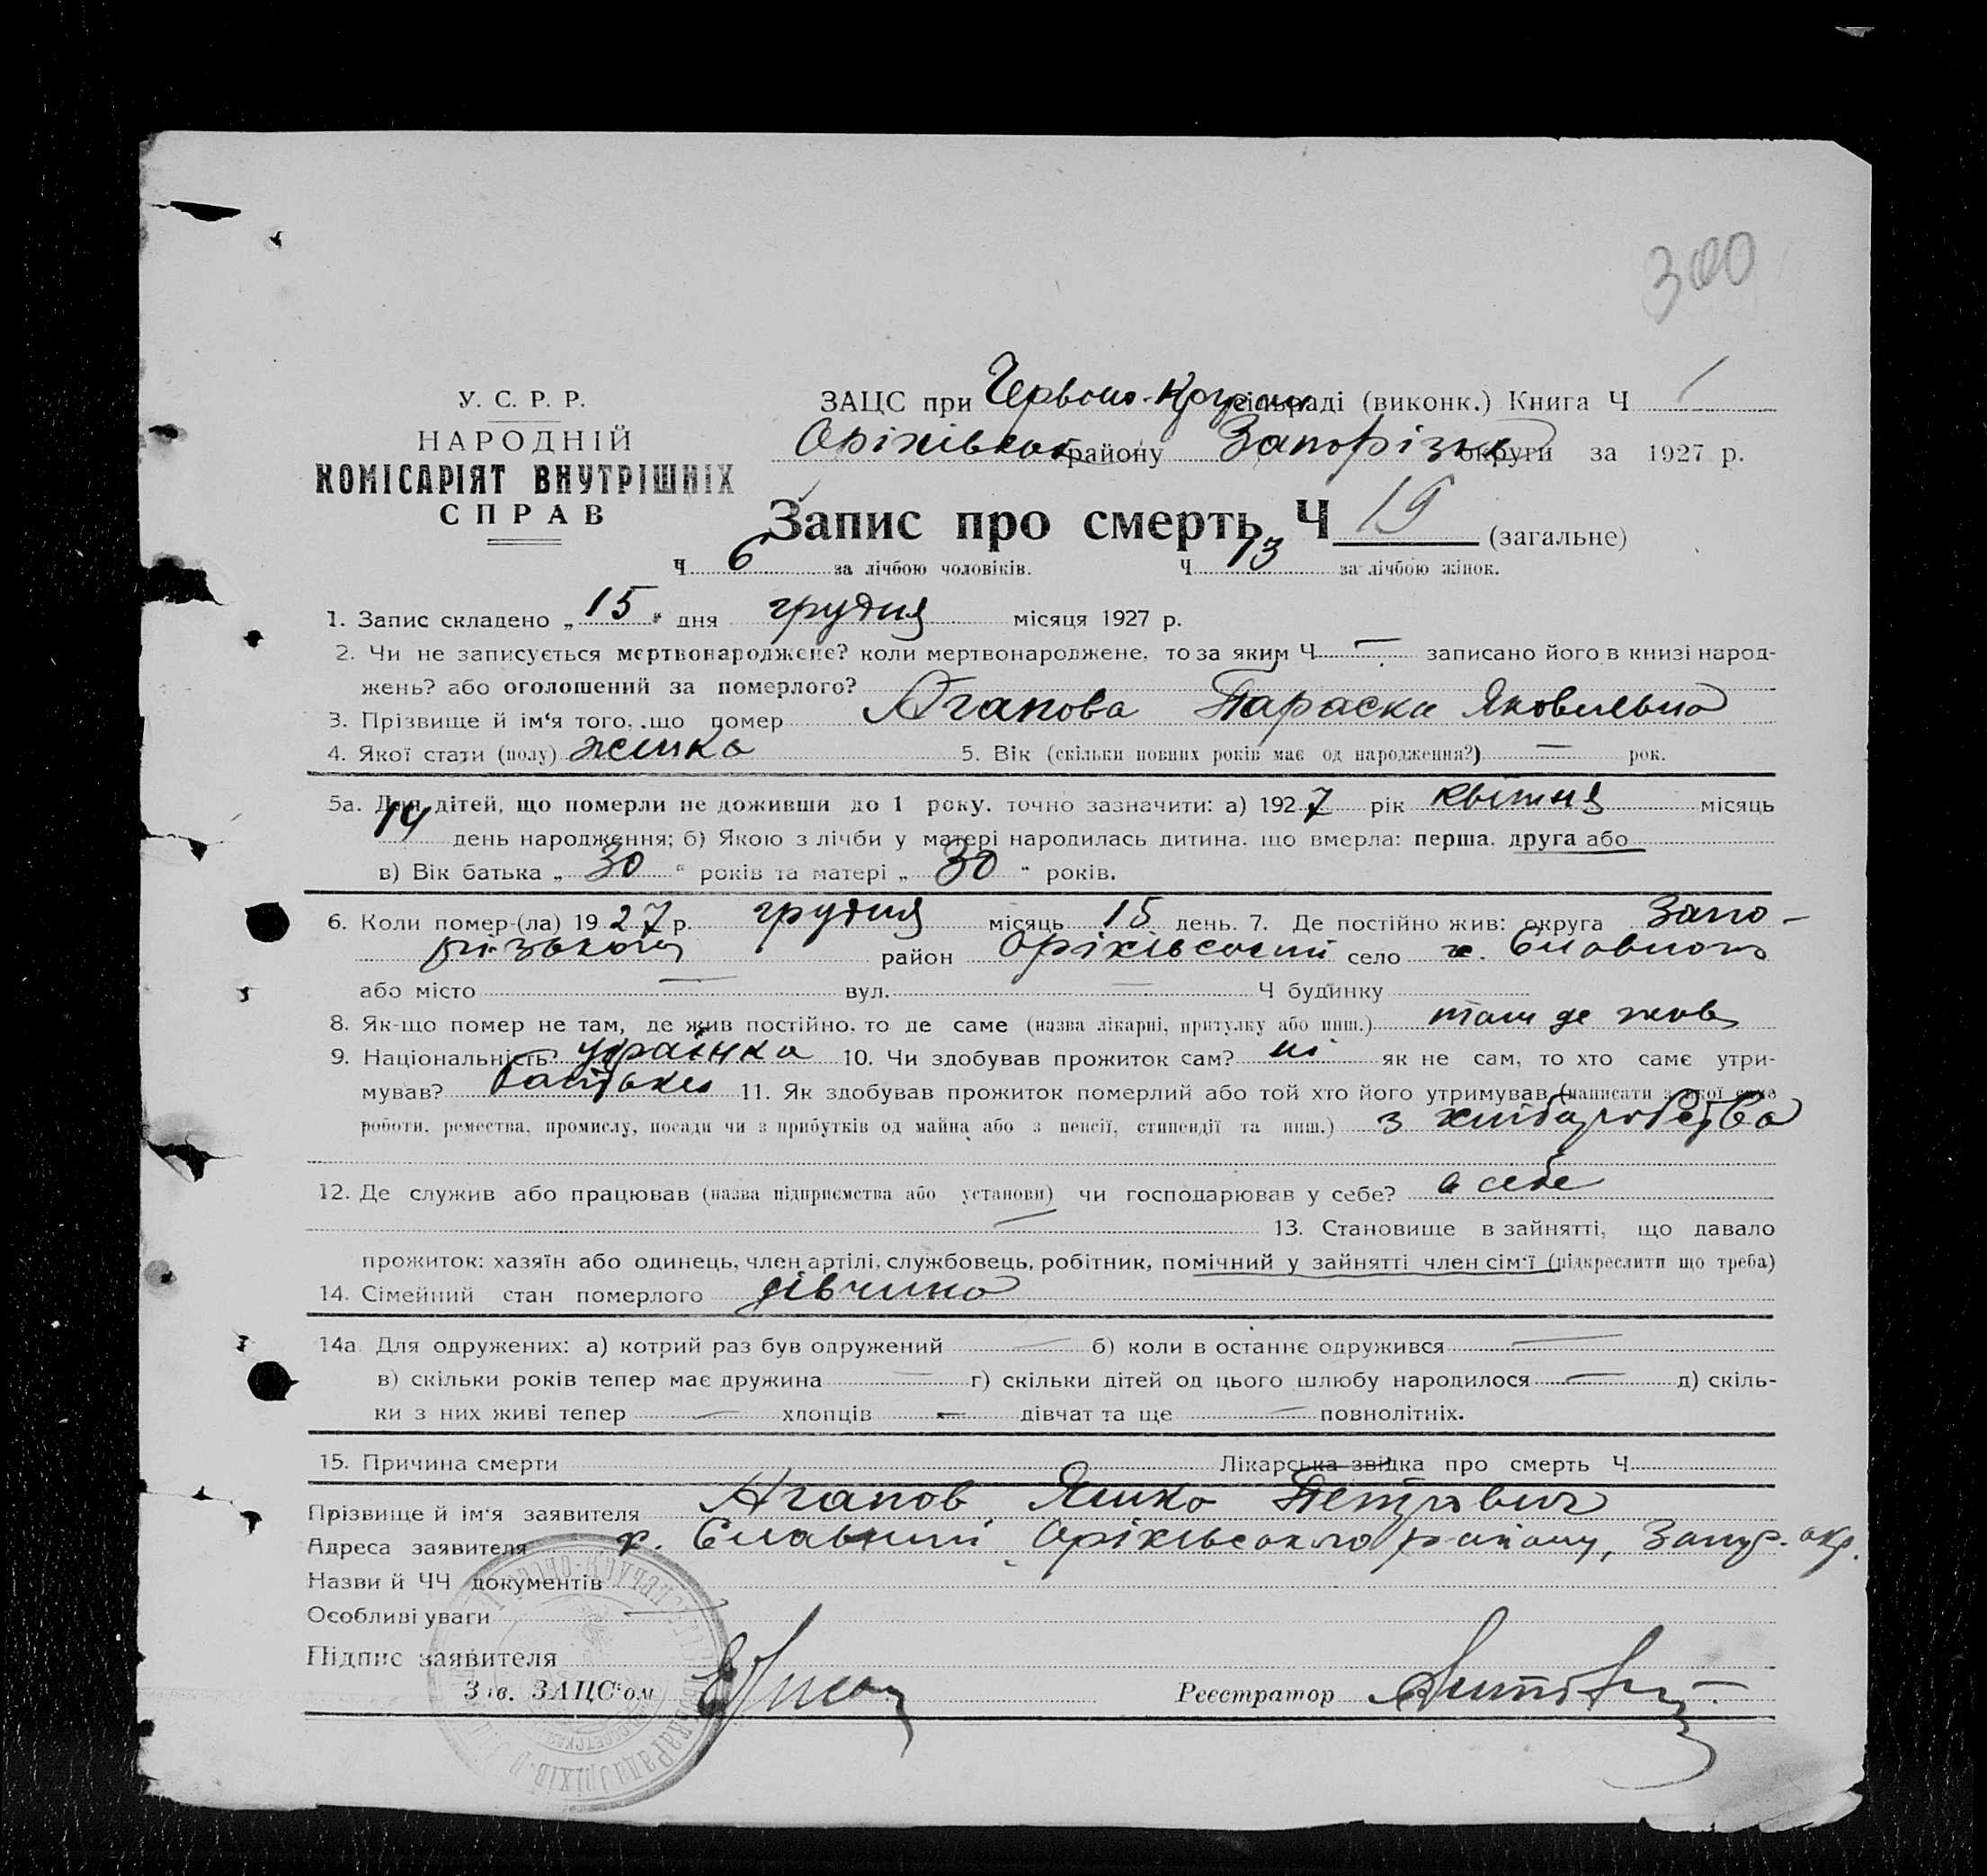 300
У. С. Р. Р.
НАРОДНІЙ
КОМІСАРІЯТ ВНУТРІШНІХ
СПРАВ
ЗАЦС при Червоно- сільраді (виконк.) Книга Ч 1
району округи за 1927 р.
Запис про смерть Ч 19 (загальне)
Ч 6 за лічбою чоловіків. Ч 13 за лічбою жінок.
1. Запис складено „ 15 “ дня грудня місяця 1927 р.
2. Чи не записується мертвонароджене? коли мертвонароджене, то за яким Ч — записано його в книзі народ-
жень? або оголошений за померлого?
3. Прізвище й ім‘я того, що помер Агапова Параска Яковльна
4. Якої стати (полу) жінка 5. Вік (скільки повних років має од народження?) — рок.
5а. Для дітей, що померли не доживши до 1 року, точно зазначити: а) 1927 рік квітня місяць
14 день народження; б) Якою з лічби у матері народилась дитина, що вмерла: перша, друга або
в) Вік батька „ 30 “ років та матері „ 30 “ років.
6. Коли помер-(ла) 1927 р. грудня місяць 15 день. 7. Де постійно жив: округа Запо-
різького район Оріхівський село х.
або місто — вул. — Ч будинку
8. Як-що помер не там, де жив постійно, то де саме (назва лікарні, притулку або инш.) там де жив
9. Національність українка 10. Чи здобував прожиток сам? ні як не сам, то хто саме утри-
мував? батьки 11. Як здобував прожиток померлий або той хто його утримував (написати з якої саме
роботи, ремества, промислу, посади чи з прибутків од майна або з пенсії, стипендії та инш.) з хліборобства
12. Де служив або працював (назва підприємства або установи) чи господарював у себе? в себе
— 13. Становище в зайнятті, що давало
прожиток: хазяїн або одинець, член артілі, службовець, робітник, помічний у зайнятті член сім‘ї (підкреслити що треба)
14. Сімейний стан померлого дівчина
14а. Для одружених: а) котрий раз був одружений — б) коли в останнє одружився —
в) скільки років тепер має дружина — г) скільки дітей од цього шлюбу народилося — д) скіль-
ки з них живі тепер — хлопців — дівчат та ще — повнолітніх.
15. Причина смерти Лікарська звідка про смерть Ч
Прізвище й ім‘я заявителя Агапов Яшко Петрович
Адреса заявителя х. Славний Оріхівського району, Запор. окр.
Назви й ЧЧ документів
Особливі уваги —
Підпис заявителя
Зав. ЗАЦС‘ом Реєстратор